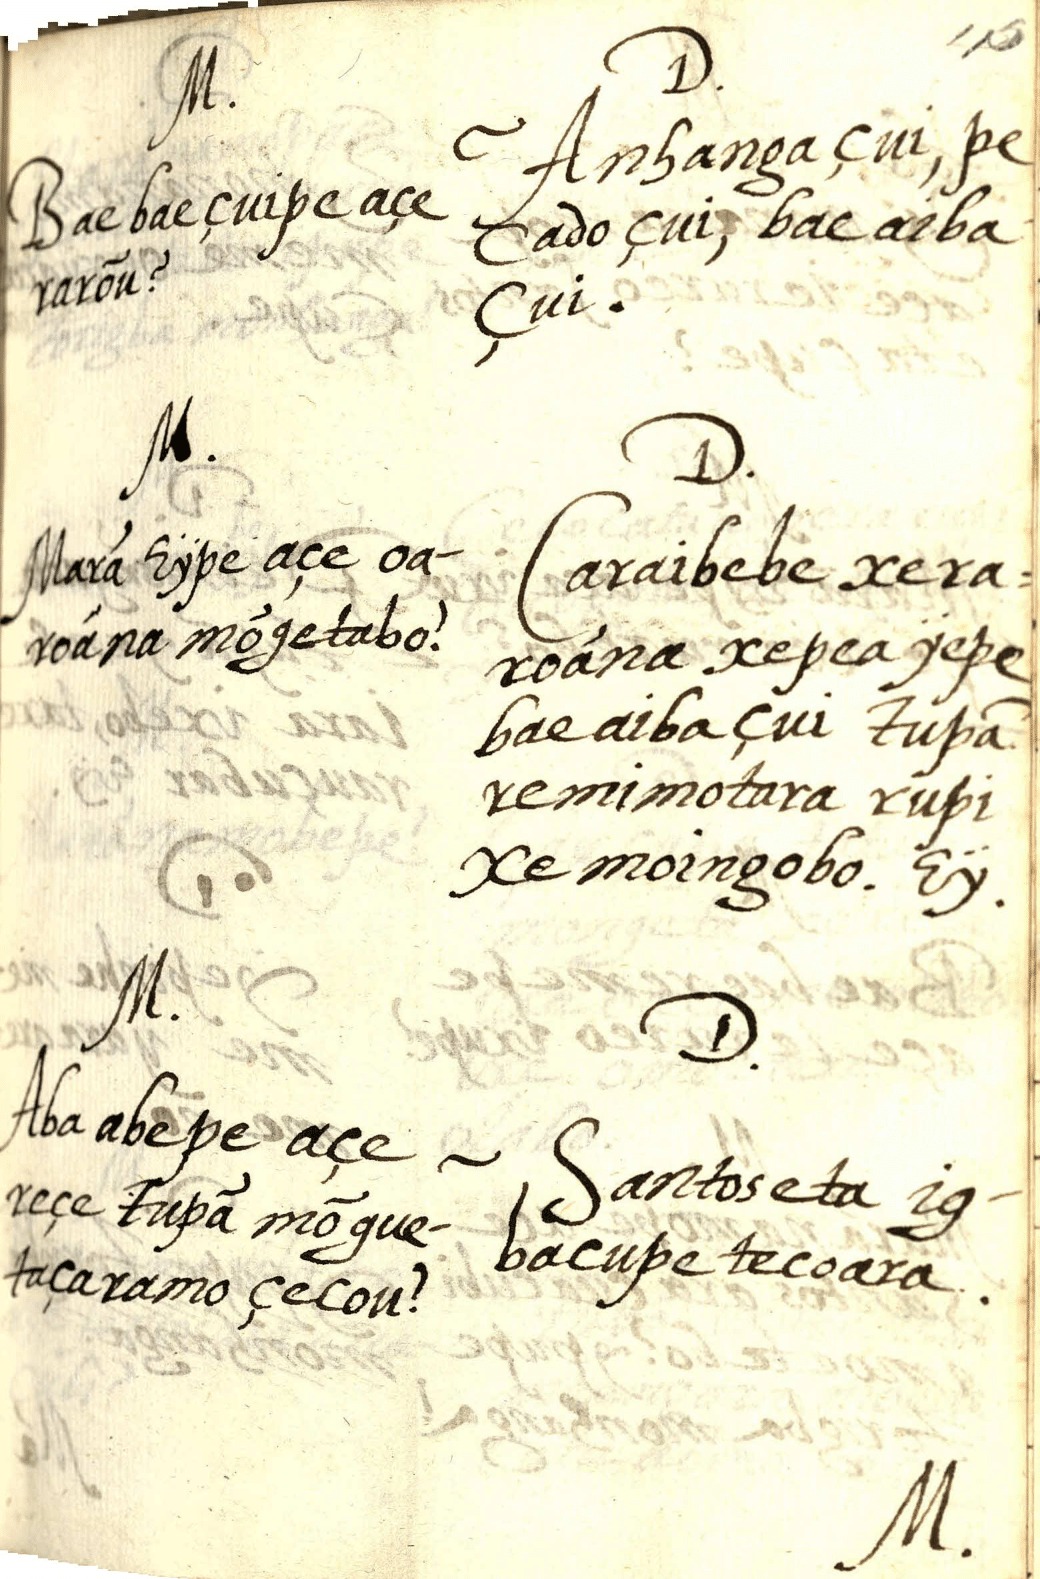 M.
Bae bae çuipe açe
rarõu?
D.
~ Anhanga çui, pe
cado çui, bae aiba
çui.
M.
Marã Eÿpe açe oa-
roána mõgetabo?
D.
Caraibebe xera=
roána xepea ÿepe
bae aiba çui tupã
remimotara rupi
xe moingobo. Eÿ.
M.
Aba abepe açe
reçe tupã mõgue-
taçaramo çecou?
D.
~ Santos eta ig-
bacupe tecoara.
M.